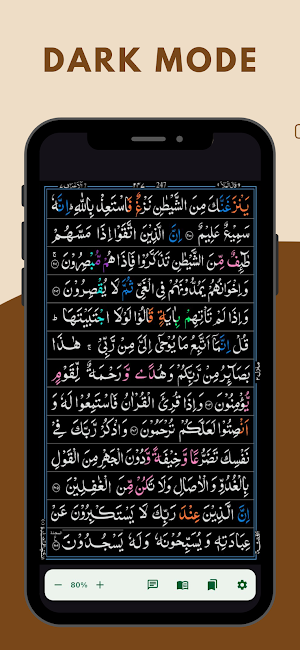 DARK MODE
247
يَنْزَغَنَّكَ مِنَ الشَّيْطٰنِ نَزْغٌ فَاسْتَعِذْ بِاللّٰهِ ؕ اِنَّهٗ
سَمِيْعٌ عَلِيْمٌ ۝ اِنَّ الَّذِيْنَ اتَّقَوْا اِذَا مَسَّهُمْ
طٰٓئِفٌ مِّنَ الشَّيْطٰنِ تَذَكَّرُوْا فَاِذَا هُمْ مُّبْصِرُوْنَ ۝
وَاِخْوَانُهُمْ يَمُدُّوْنَهُمْ فِى الْغَىِّ ثُمَّ لَا يُقْصِرُوْنَ ۝
وَاِذَا لَمْ تَاْتِهِمْ بِاٰيَةٍ قَالُوْا لَوْلَا اجْتَبَيْتَهَا ؕ
قُلْ اِنَّمَاۤ اَتَّبِعُ مَا يُوْحٰۤى اِلَىَّ مِنْ رَّبِّىْ ۚ هٰذَا
بَصَآئِرُ مِنْ رَّبِّكُمْ وَهُدًى وَّرَحْمَةٌ لِّقَوْمٍ
يُّؤْمِنُوْنَ ۝ وَاِذَا قُرِئَ الْقُرْاٰنُ فَاسْتَمِعُوْا لَهٗ وَ
اَنْصِتُوْا لَعَلَّكُمْ تُرْحَمُوْنَ ۝ وَاذْكُرْ رَّبَّكَ فِىْ
نَفْسِكَ تَضَرُّعًا وَّخِيْفَةً وَّدُوْنَ الْجَهْرِ مِنَ الْقَوْلِ
بِالْغُدُوِّ وَالْاٰصَالِ وَلَا تَكُنْ مِّنَ الْغٰفِلِيْنَ ۝
اِنَّ الَّذِيْنَ عِنْدَ رَبِّكَ لَا يَسْتَكْبِرُوْنَ عَنْ
عِبَادَتِهٖ وَيُسَبِّحُوْنَهٗ وَلَهٗ يَسْجُدُوْنَ ۝
80%